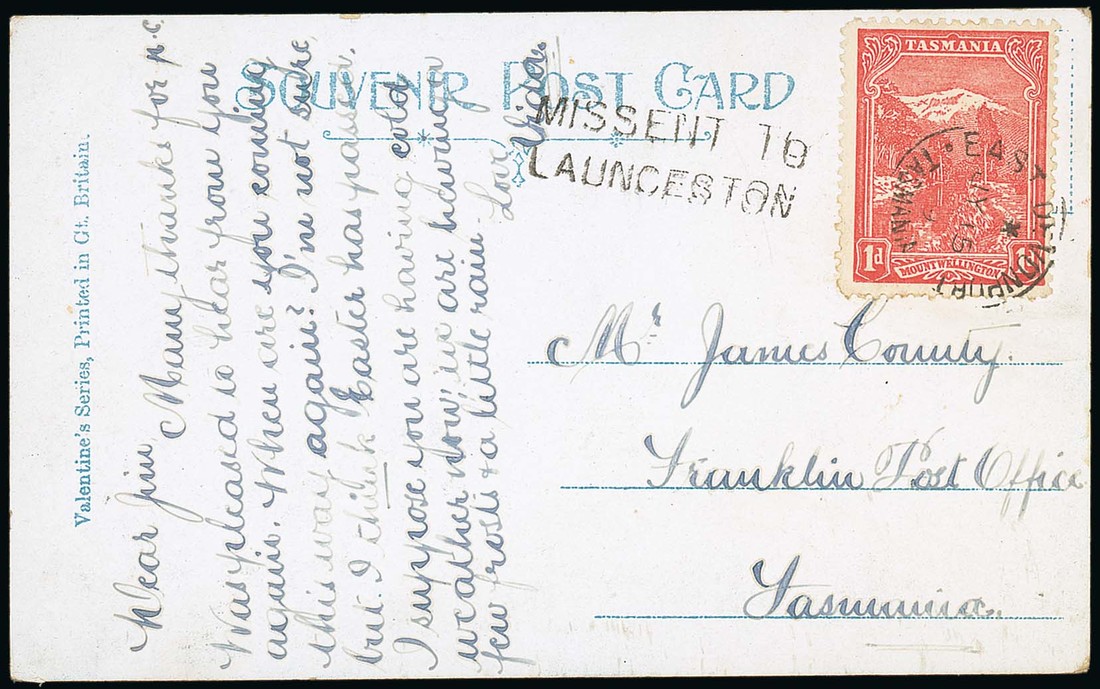 SOUVENIR POST CARD
Valentine's Series, Printed in Gt. Britain.
MISSENT TO
LAUNCESTON
TASMANIA
1d
MOUNT WELLINGTON
EAST DEVONPORT
TASMANIA
15
Dear Jim
Many thanks for p.c.
Was pleased to hear from you
again. When are you coming
this way again? I'm not sure
but I think Easter has passed.
I suppose you are having cold
weather now, we are having a
few frosts & a little rain.
Love
Mr James County.
Franklin Post Office
Tasmania.